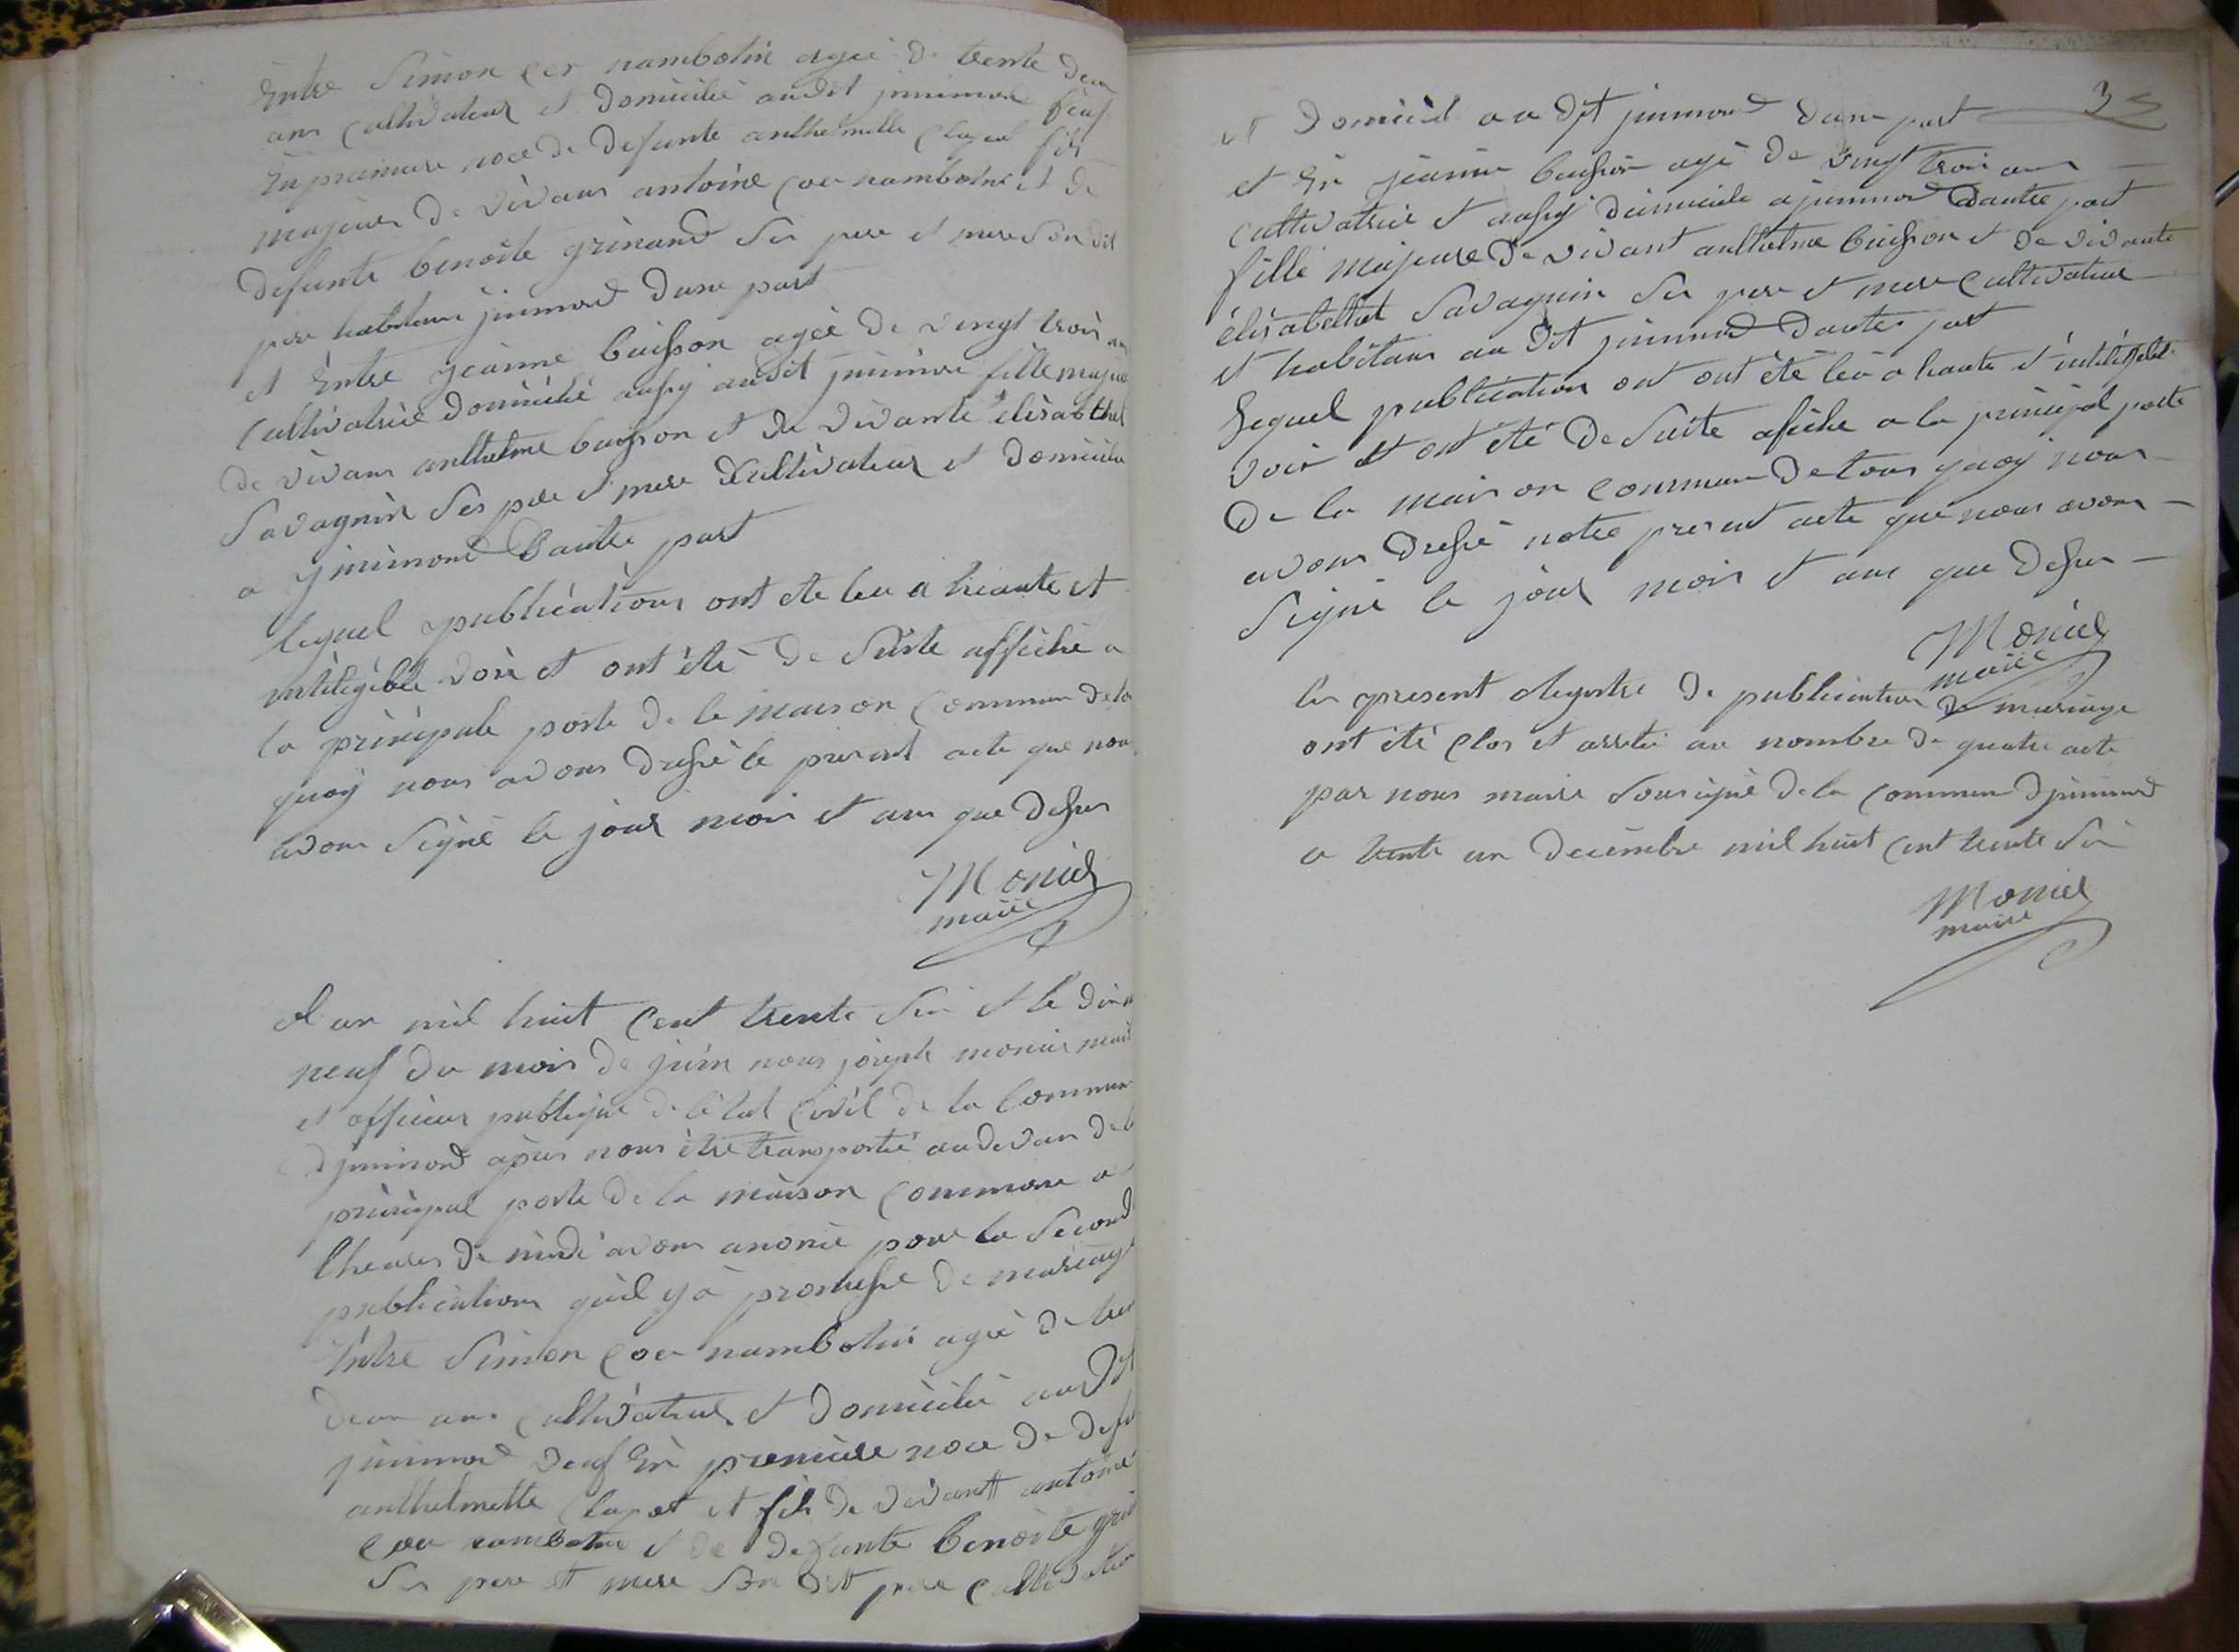 Entre Simon coc nambotin agée de trente deux
ans Cultivateur et domicilié audit jnnimond veuf
En premiere noce de defunte anthelmette Clapet fils
majeur de vivans antoine Coc nambotin et de
defunte benoite grinand Ses pere et mere Son dit
pere habitans jnnimond dune part
et Entre jeanne buisson agée de vingt trois ans
Cultivatrice domicilié aussy audit jnnimon fille majeure
de vivans anthelme buisson et de vivante elisabethet
Savagnin Ses pere et mere Cultivateur et domicilié
a ynnimond Dautre part
lequel publications ont ete leu a hieaute et
intélégible voix et ont été de Suite affiché a
la principale porte de le maison Commun de tou
quoy nous avons dressé le present acte que nous
avons Signé le jour mois et ans que dessus
Monier
maire
Lan mil huit Cent trente Six et le dix
neuf du mois de juin nous joseph monier maire
et officier publique de létat Civil de la Commun
djnnimond apres nous étre transporté audevan de la
principal porte de la maison Commune a
lheures de midi avons anoncé pour la Second
publications quil y a promesse de mariage
Entre Simon Coc nambotin agée de tren
deux ans Cultivateur et domicilié audit
jnnimond veuf En premiere noce de defun
anthelmette Clapet et fils de vivant antoine
Coc nambotin et de defunte benoite grin
Ses pere et mere Son dit pere Cultivateur
35
et domicié au dit jnnimond dune part
et En jeanne buisson agé de vingt trois ans
Cultivatrice et aussy domicilie a jnnimond dautre part
fille majeure de vivant anthelme buisson et de vivante
élisabethet Savagnin Ses pere et mere Cultivateur
et habitans au dit jnnimond dautre part
Lequel publication ont ont été leu a haute et intélégible
voix et ont été de Suite afiché a la principal porte
de la maison Commun de tous quoy nous
avons dressé notre present acte que nous avons
Signé le jour mois et ans que dessus
Monier
maire
les present Registre de publication de mariage
ont été clos et arreté au nombre de quatre acte
par nous maire Sousigné de la Commun djnnimond
a trente un decembre mil huit Cent trente Six
Monier
maire